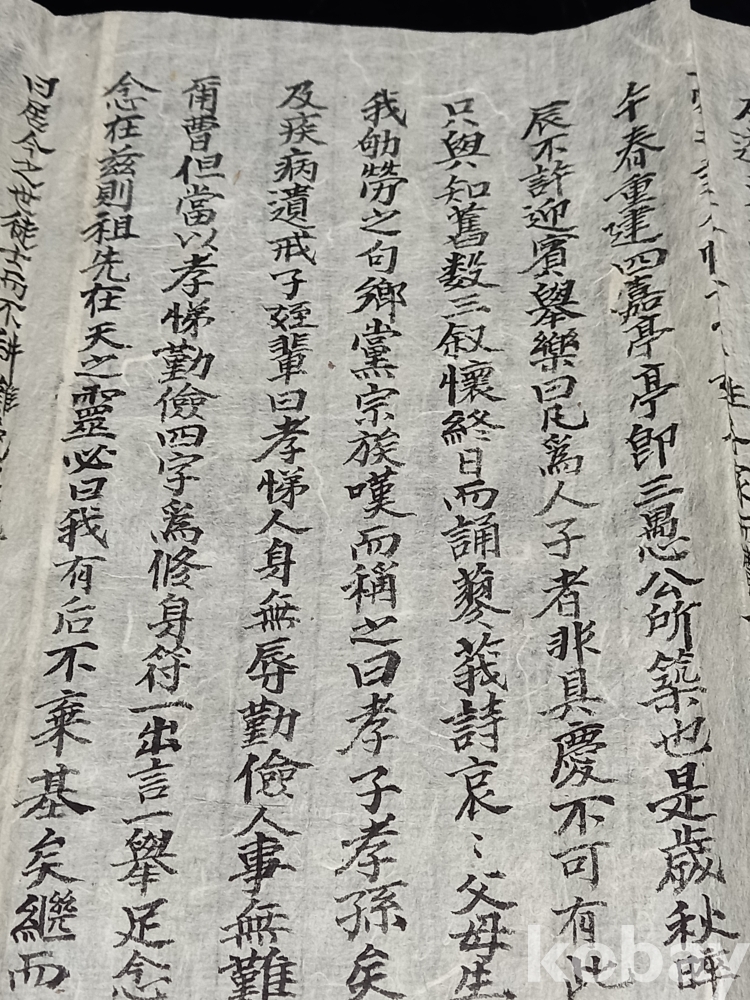 午春重建四嘉亭亭卽三愚公所築也是歲秋晬
辰不許迎賓舉樂曰凡爲人子者非具慶不可有此
只與知舊数三叙懷終日而誦蓼莪詩哀〻父母生
我劬勞之句鄉黨宗族嘆而稱之曰孝子孝孫矣
及疾病遺戒子姪輩曰孝悌人身無辱勤儉人事無難
甭曹但當以孝悌勤儉四字爲修身符一出言一舉足念
念在兹則祖先在天之靈必曰我有后不棄基矣繼而
曰居今之世徒士而不耕難
kobay